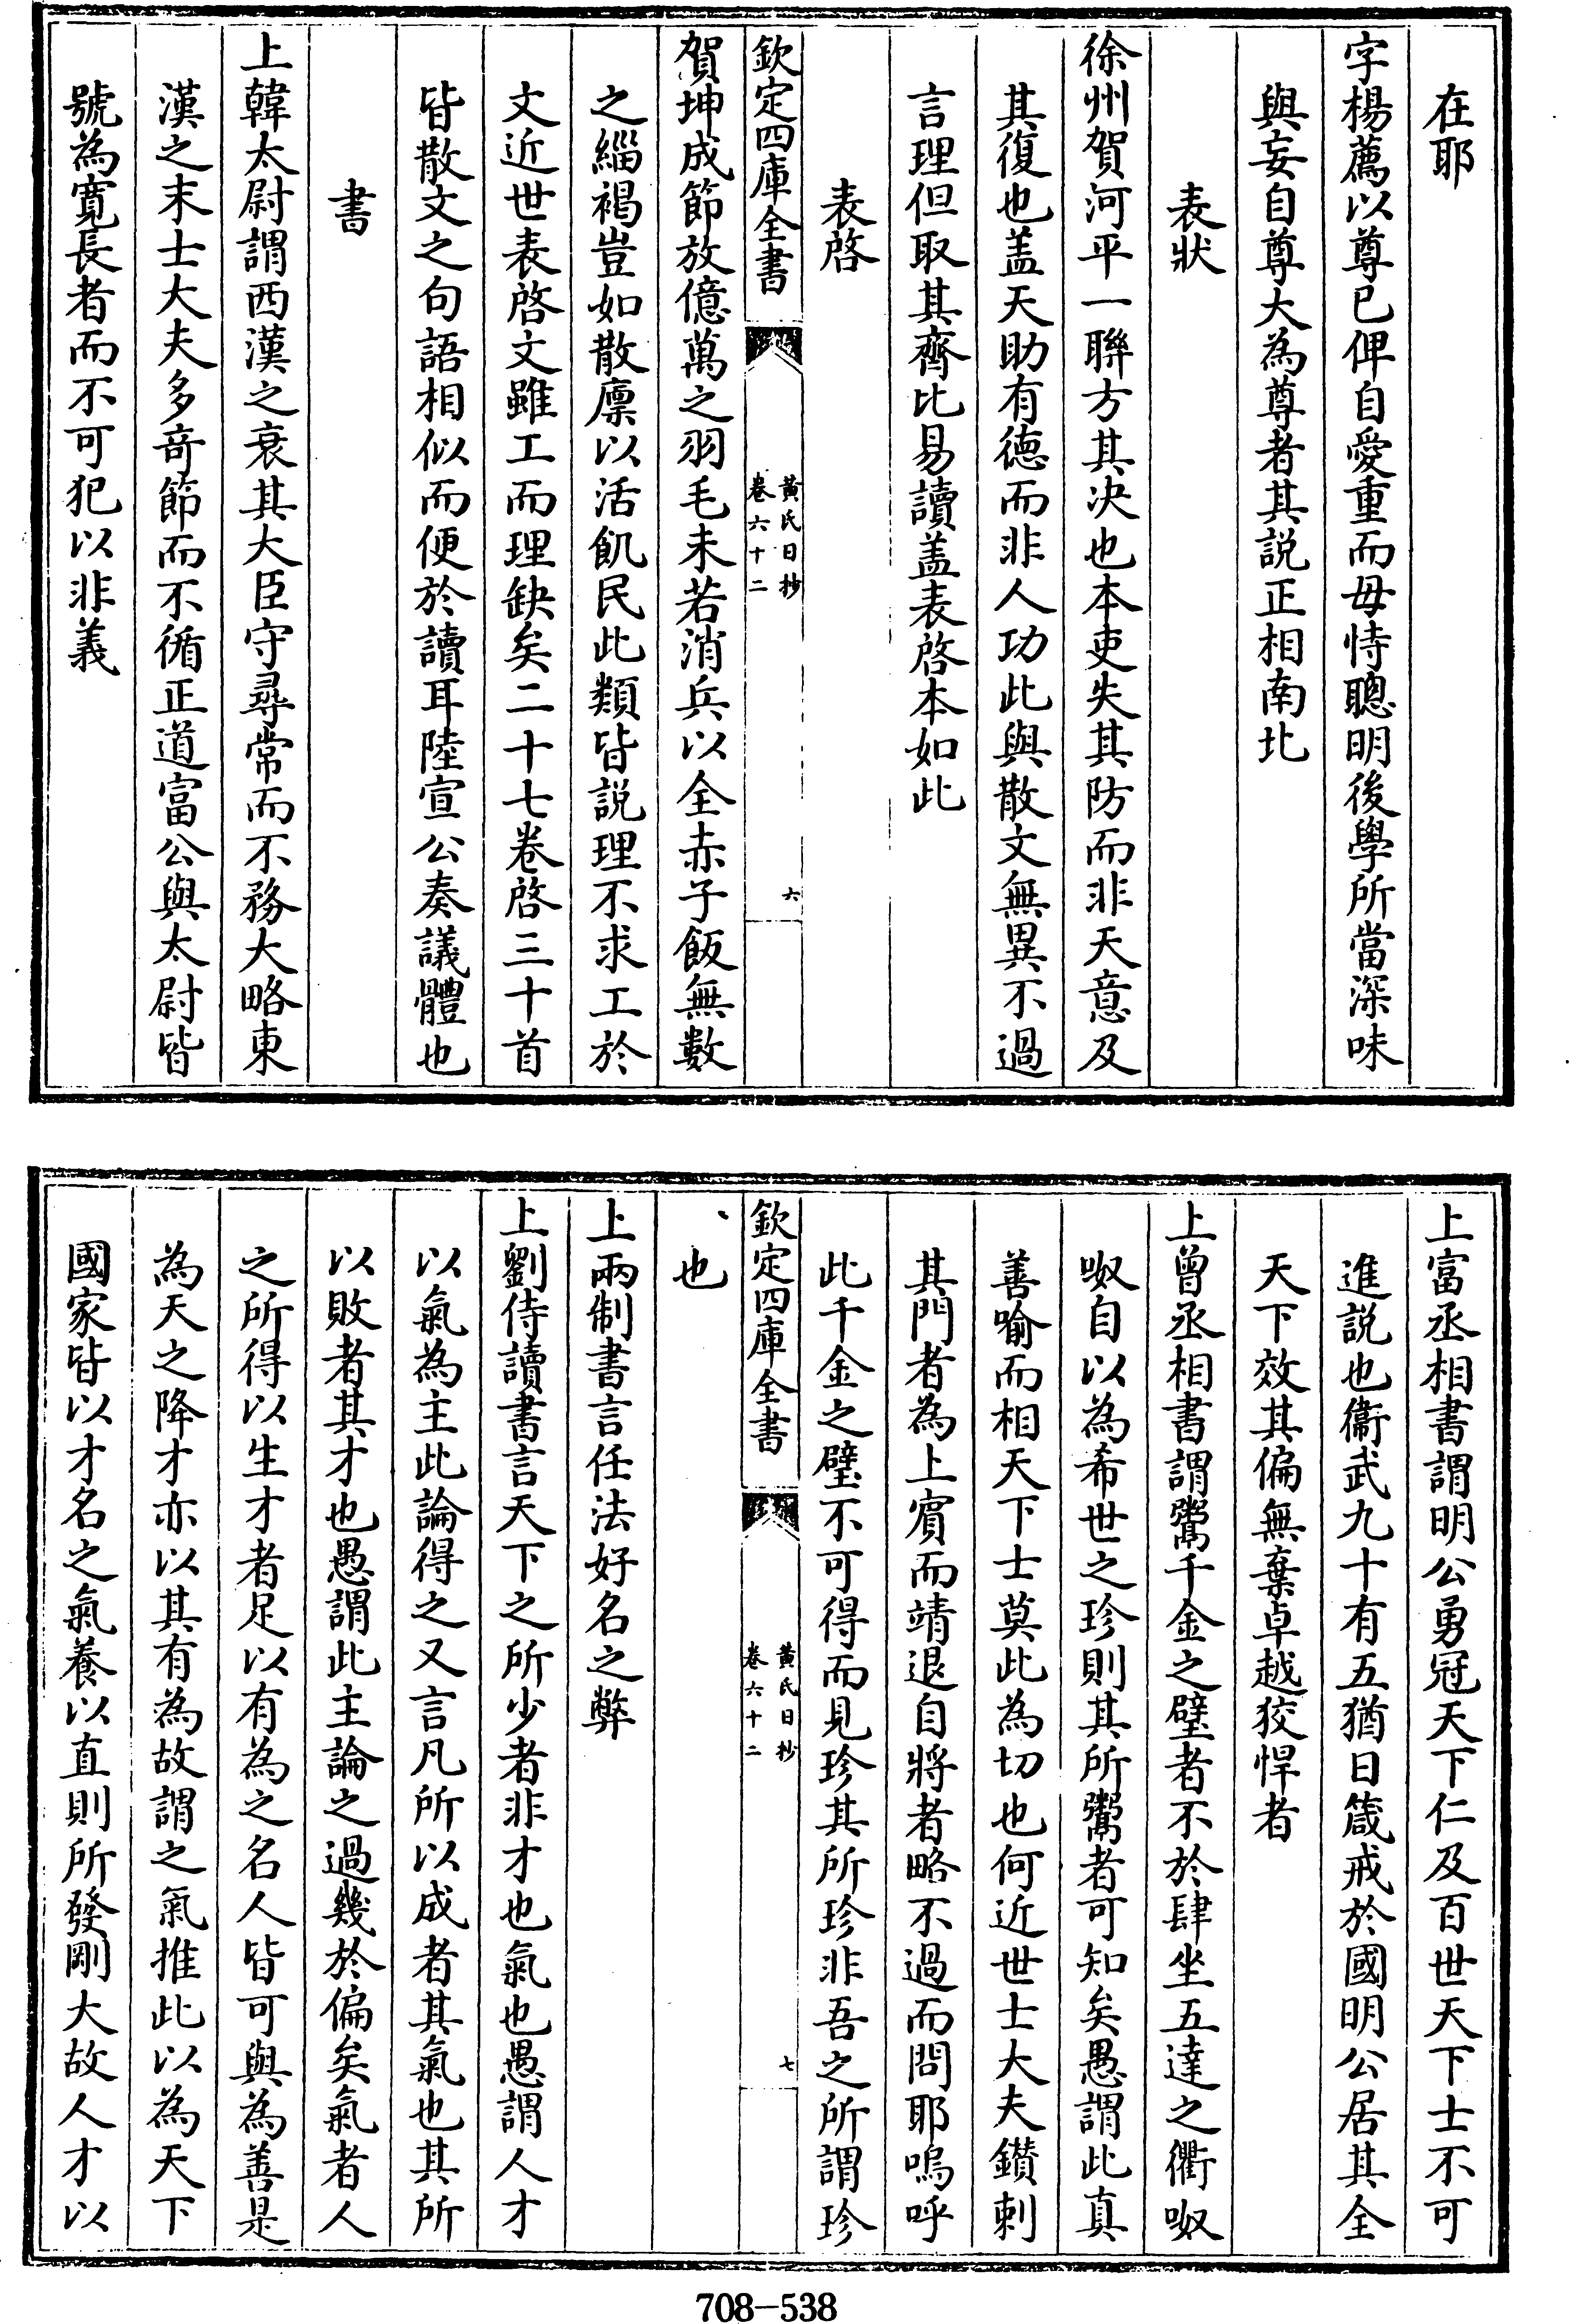 在耶
字楊薦以尊已俾自愛重而毋恃聰明後學所當深味
與妄自尊大為尊者其説正相南北
表狀
徐州賀河平一聯方其决也本吏失其防而非天意及
其復也盖天助有德而非人功此與散文無異不過
言理但取其齊比易讀盖表啓本如此
表啓
欽定四庫全書
黃氏日抄
卷六十二
六
賀坤成節放億萬之羽毛未若消兵以全赤子飯無數
之緇褐豈如散廪以活飢民此類皆説理不求工於
文近世表啓文雖工而理缺矣二十七卷啓三十首
皆散文之句語相似而便於讀耳陸宣公奏議體也
書
上韓太尉謂西漢之衰其大臣守尋常而不務大略東
漢之末士大夫多竒節而不循正道富公與太尉皆
號為寛長者而不可犯以非義
上富丞相書謂明公勇冠天下仁及百世天下士不可
進説也衞武九十有五猶日箴戒於國明公居其全
天下效其偏無棄卓越狡悍者
上曾丞相書謂鬻千金之璧者不於肆坐五達之衢呶
呶自以為希世之珍則其所鬻者可知矣愚謂此真
善喻而相天下士莫此為切也何近世士大夫鑚刺
其門者為上賔而靖退自將者略不過而問耶嗚呼
此千金之璧不可得而見珍其所珍非吾之所謂珍
欽定四庫全書
黃氏日抄
卷六十二
七
也
上兩制書言任法好名之弊
上劉侍讀書言天下之所少者非才也氣也愚謂人才
以氣為主此論得之又言凡所以成者其氣也其所
以敗者其才也愚謂此主論之過幾於偏矣氣者人
之所得以生才者足以有為之名人皆可與為善是
為天之降才亦以其有為故謂之氣推此以為天下
國家皆以才名之氣養以直則所發剛大故人才以
708-538